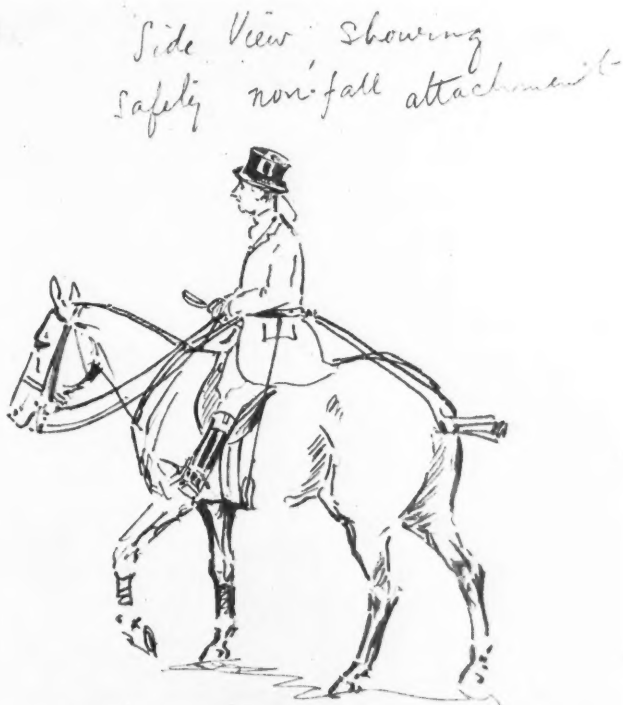 Side View, showing
safety non-fall attachment